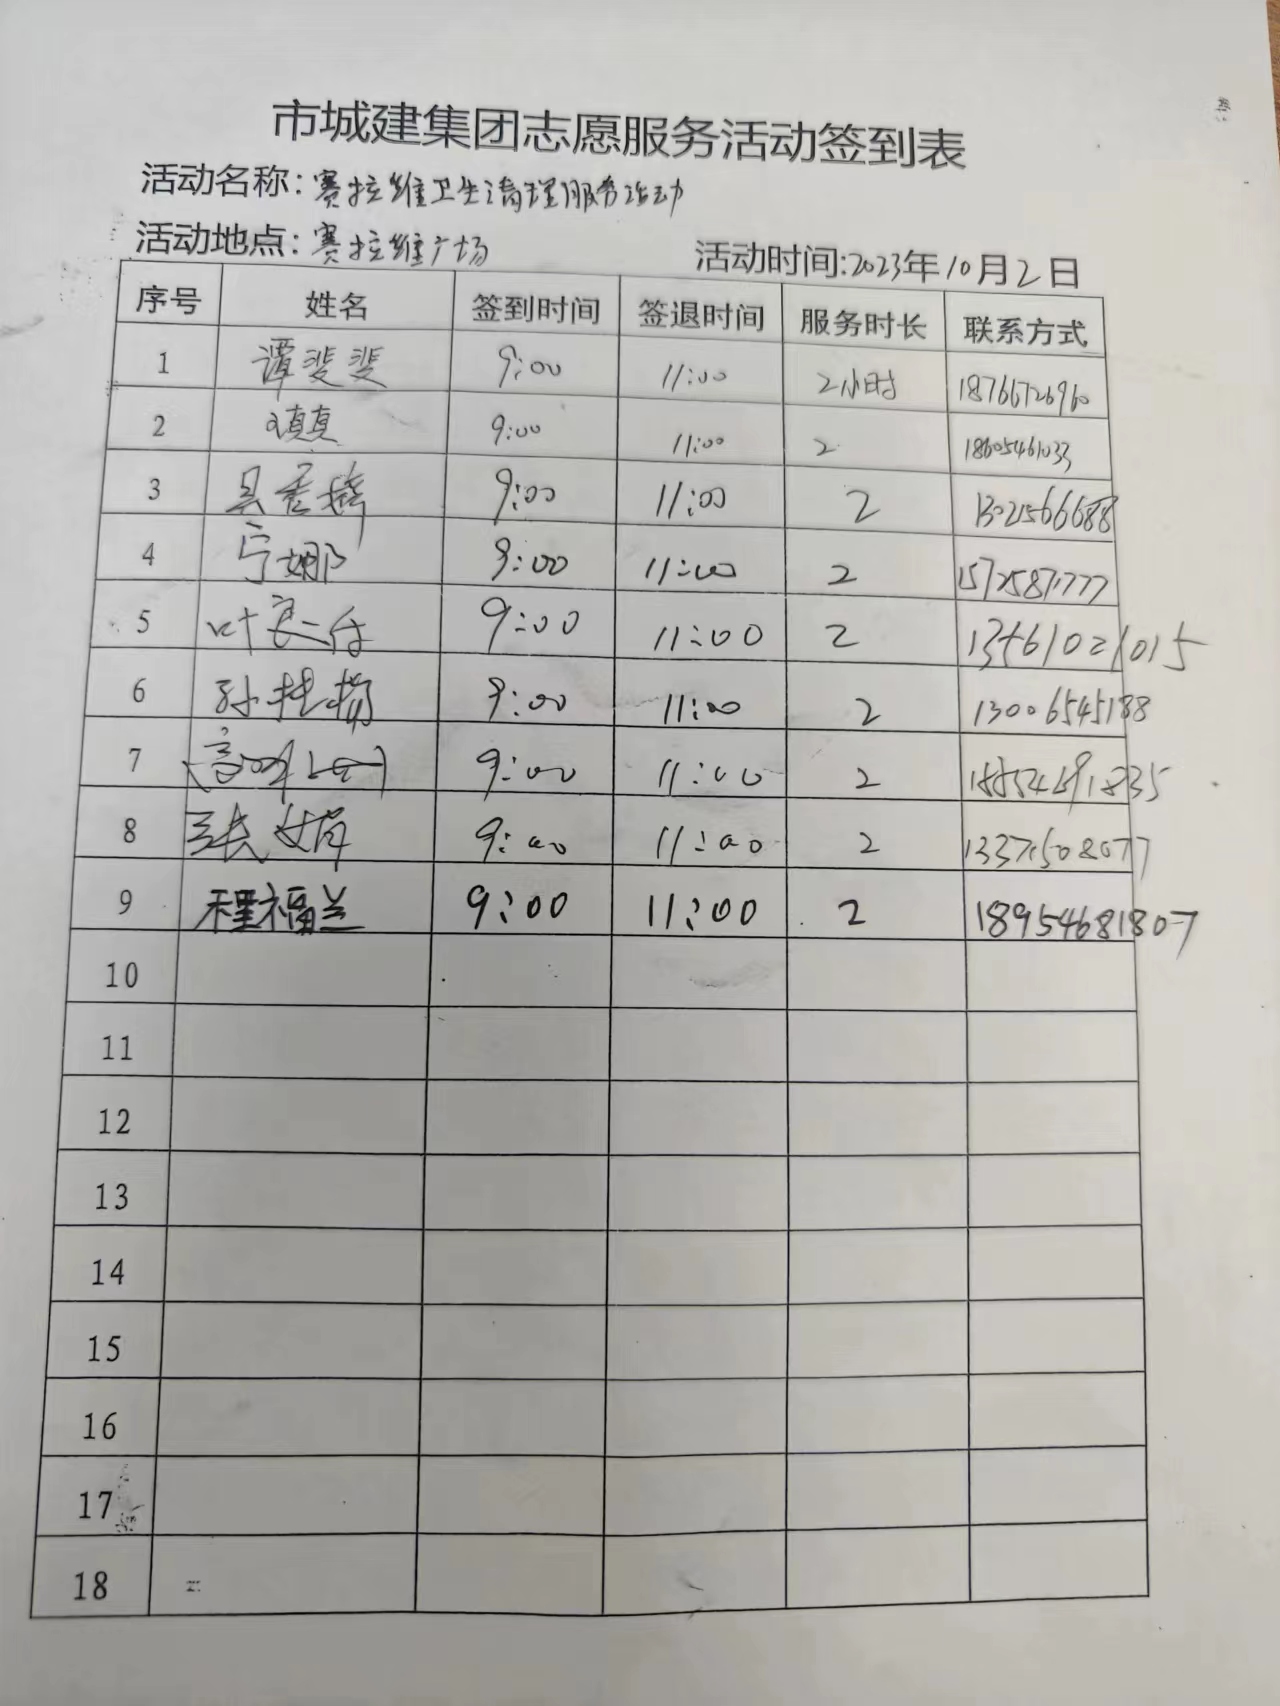 市城建集团志愿服务活动签到表
活动名称:赛拉维卫生清理服务活动
活动地点:赛拉维广场 活动时间:2023年10月2日
序号 姓名 签到时间 签退时间 服务时长 联系方式
1 谭斐斐 9:00 11:00 2小时 18766726960
2 9:00 11:00 2 18605461033
3 9:00 11:00 2 13021566688
4 宁娜 9:00 11:00 2 15725871777
5 9:00 11:00 2 13461021015
6 孙桂杨 9:00 11:00 2 13006545188
7 9:00 11:00 2
8 张娟 9:00 11:00 2 13371508077
9 程福兰 9:00 11:00 2 18954681807
10
11
12
13
14
15
16
17
18